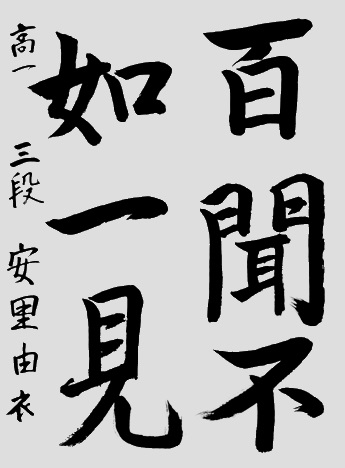 百聞不
如一見
高一 三段 安里由衣